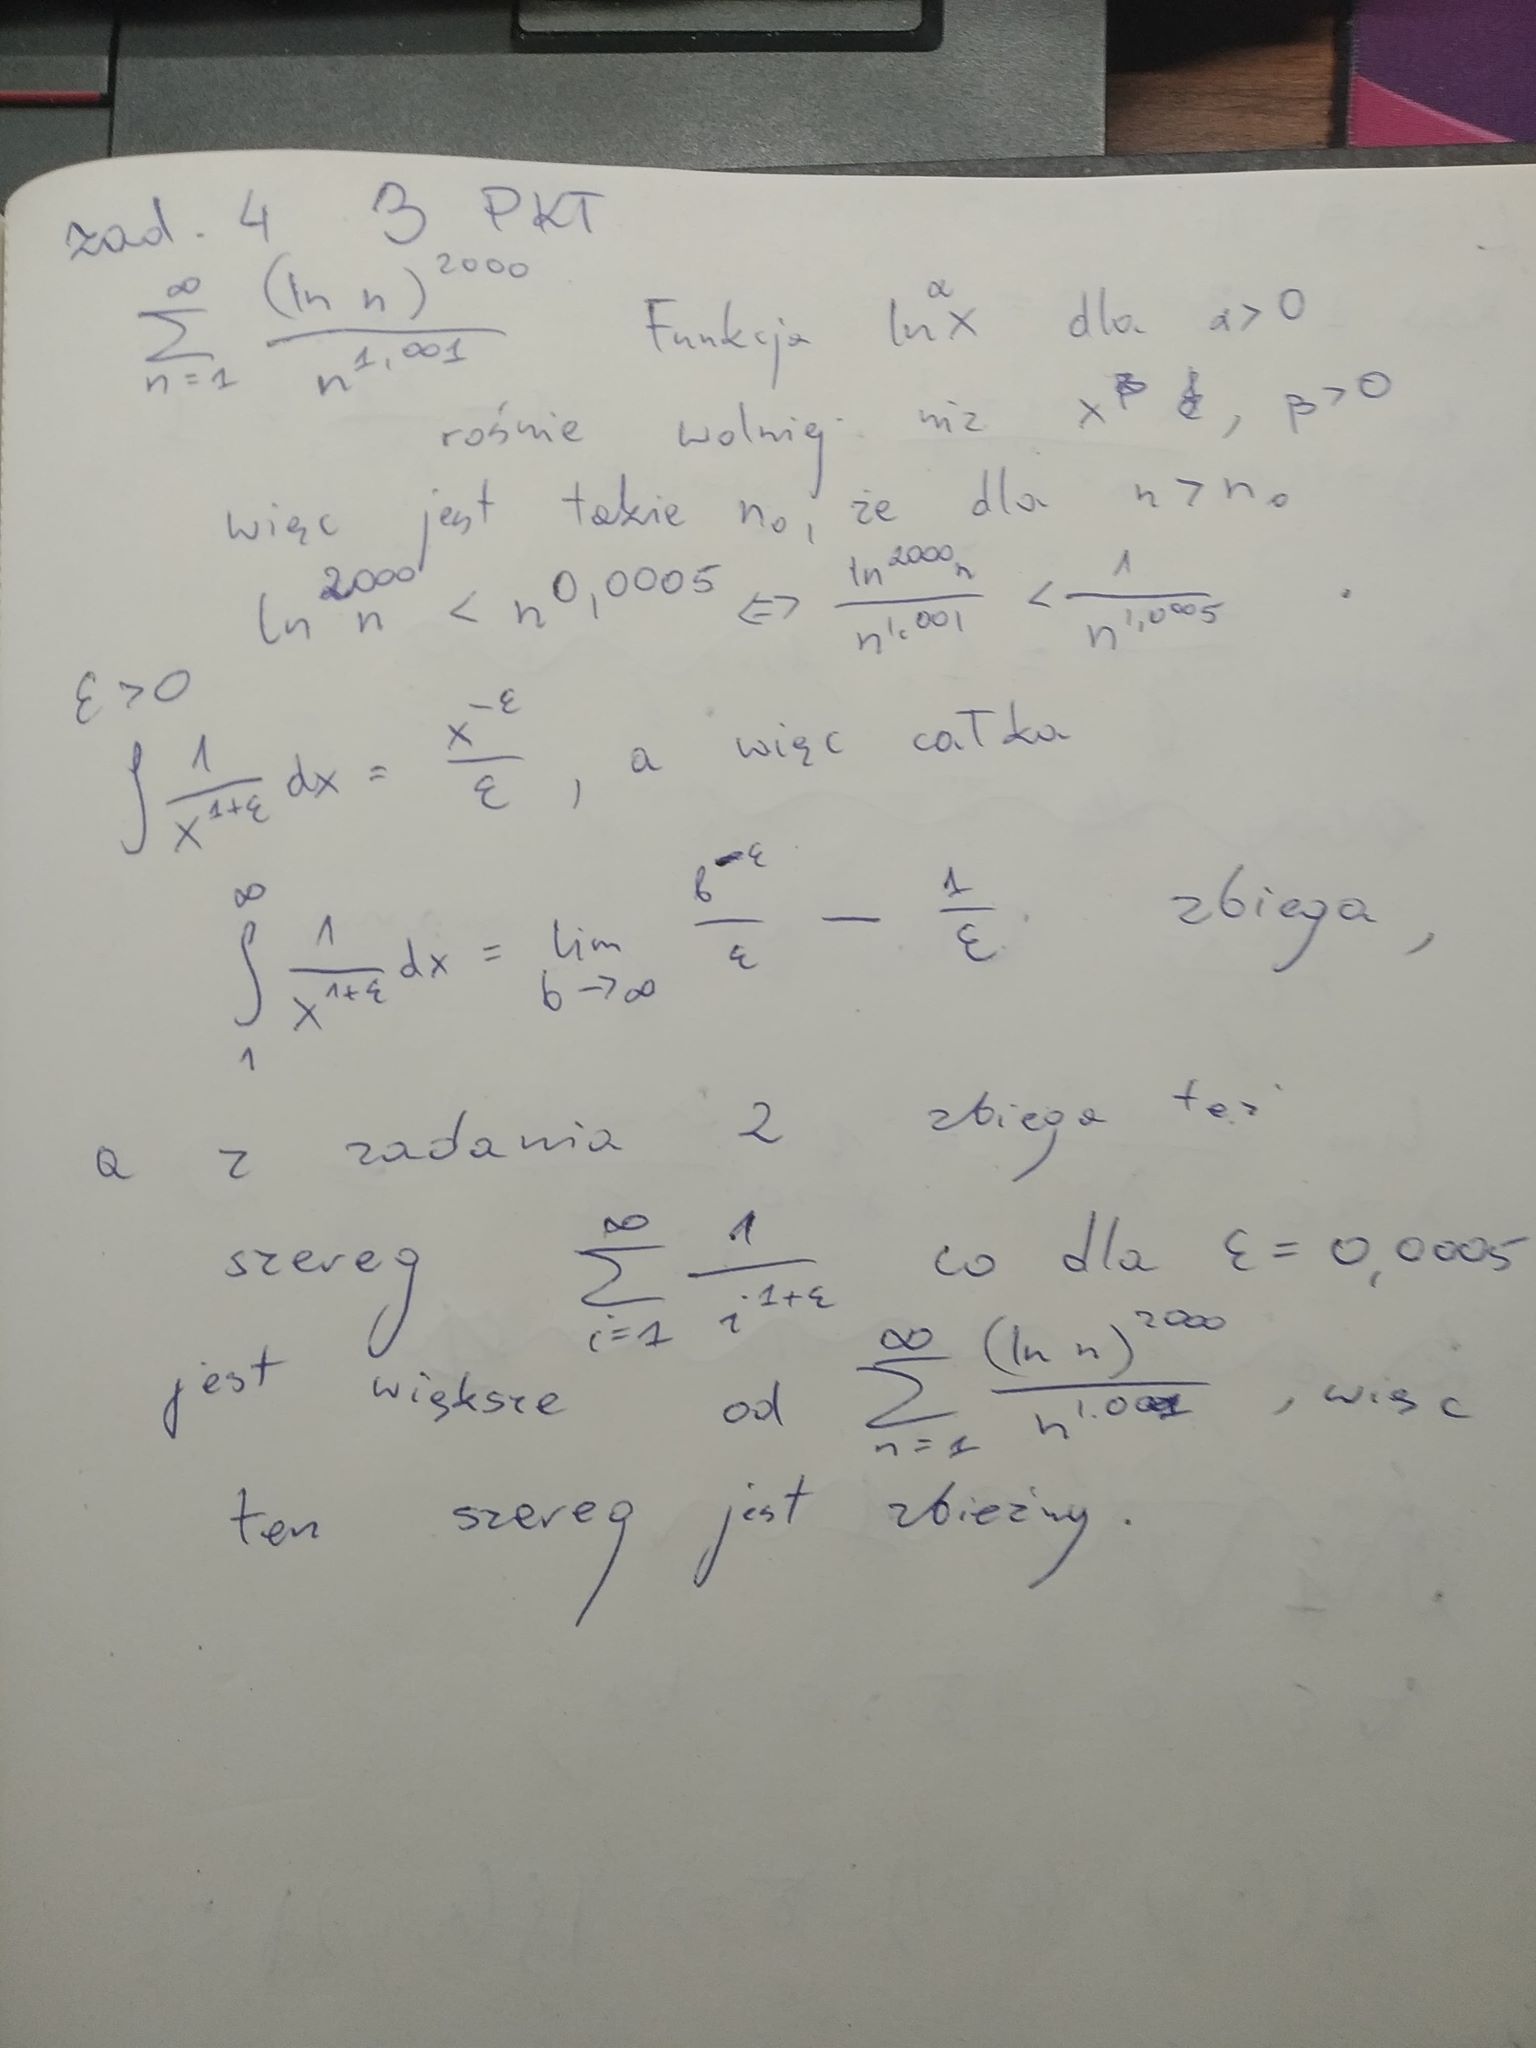 zad. 4 3 PKT
∞∑n=1 (ln n)^2000 / n^1,001 Funkcja ln^α x dla α>0
rośnie wolniej niż x^β, β>0
więc jest takie n₀, że dla n>n₀
ln^2000 n < n^0,0005 ⇔ ln^2000 n / n^1,001 < 1 / n^1,0005 .
ε>0
∫ 1/x^(1+ε) dx = x^(-ε)/ε , a więc całka
∫_1^∞ 1/x^(1+ε) dx = lim b→∞ b^(-ε)/ε − 1/ε zbiega,
a z zadania 2 zbiega też
szereg ∞∑i=1 1/i^(1+ε) co dla ε=0,0005
jest większe od ∞∑n=1 (ln n)^2000 / n^1.001 , więc
ten szereg jest zbieżny.